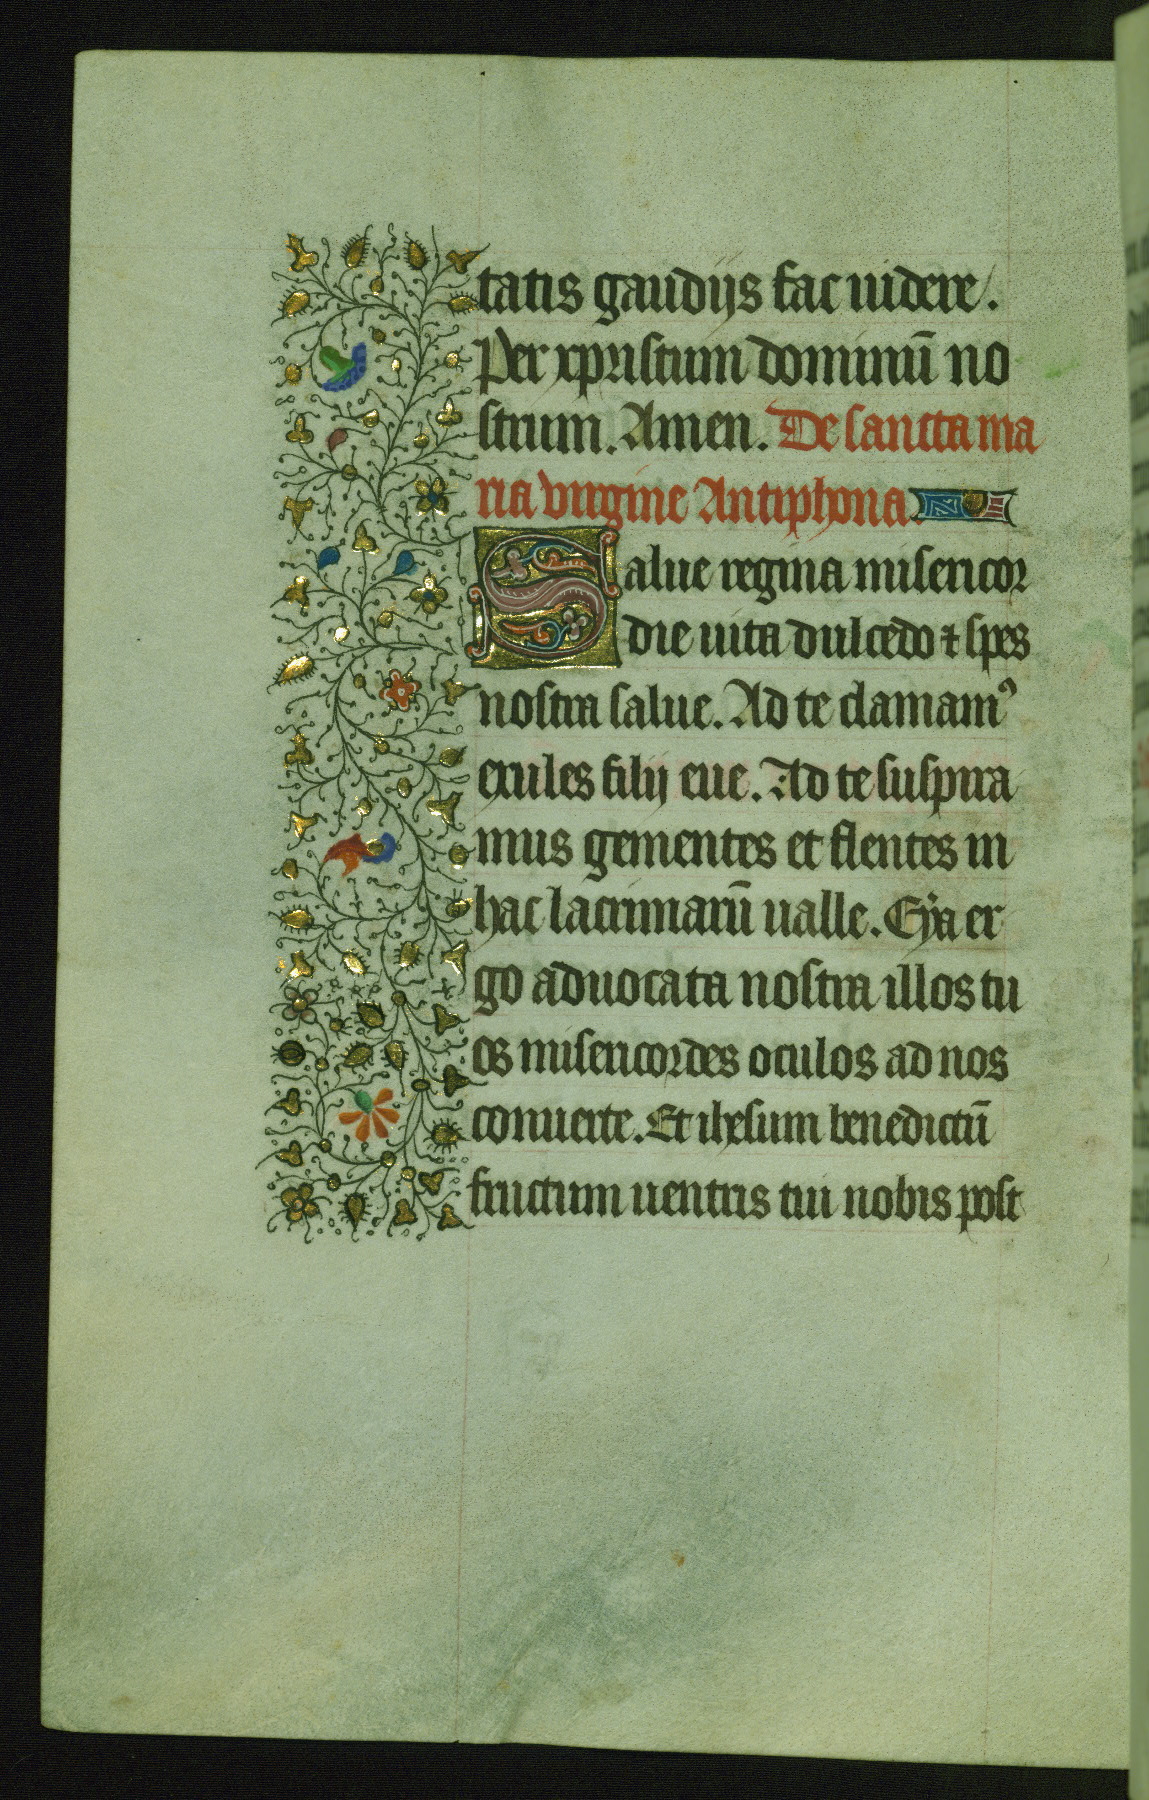 tatis gaudijs fac uidere.
Per xpristum dominū no
strum. Amen. De sancta ma
ria virgine Antiphona.
Salue regina misericor
die uita dulcedo ⁊ spes
nostra salue. Ad te clamamꝰ
exules filij eue. Ad te suspira
mus gementes et flentes in
hac lacrimarū ualle. Eya er
go aduocata nostra illos tu
os misericordes oculos ad nos
conuerte. Et ihesum benedictū
fructum uentris tui nobis post